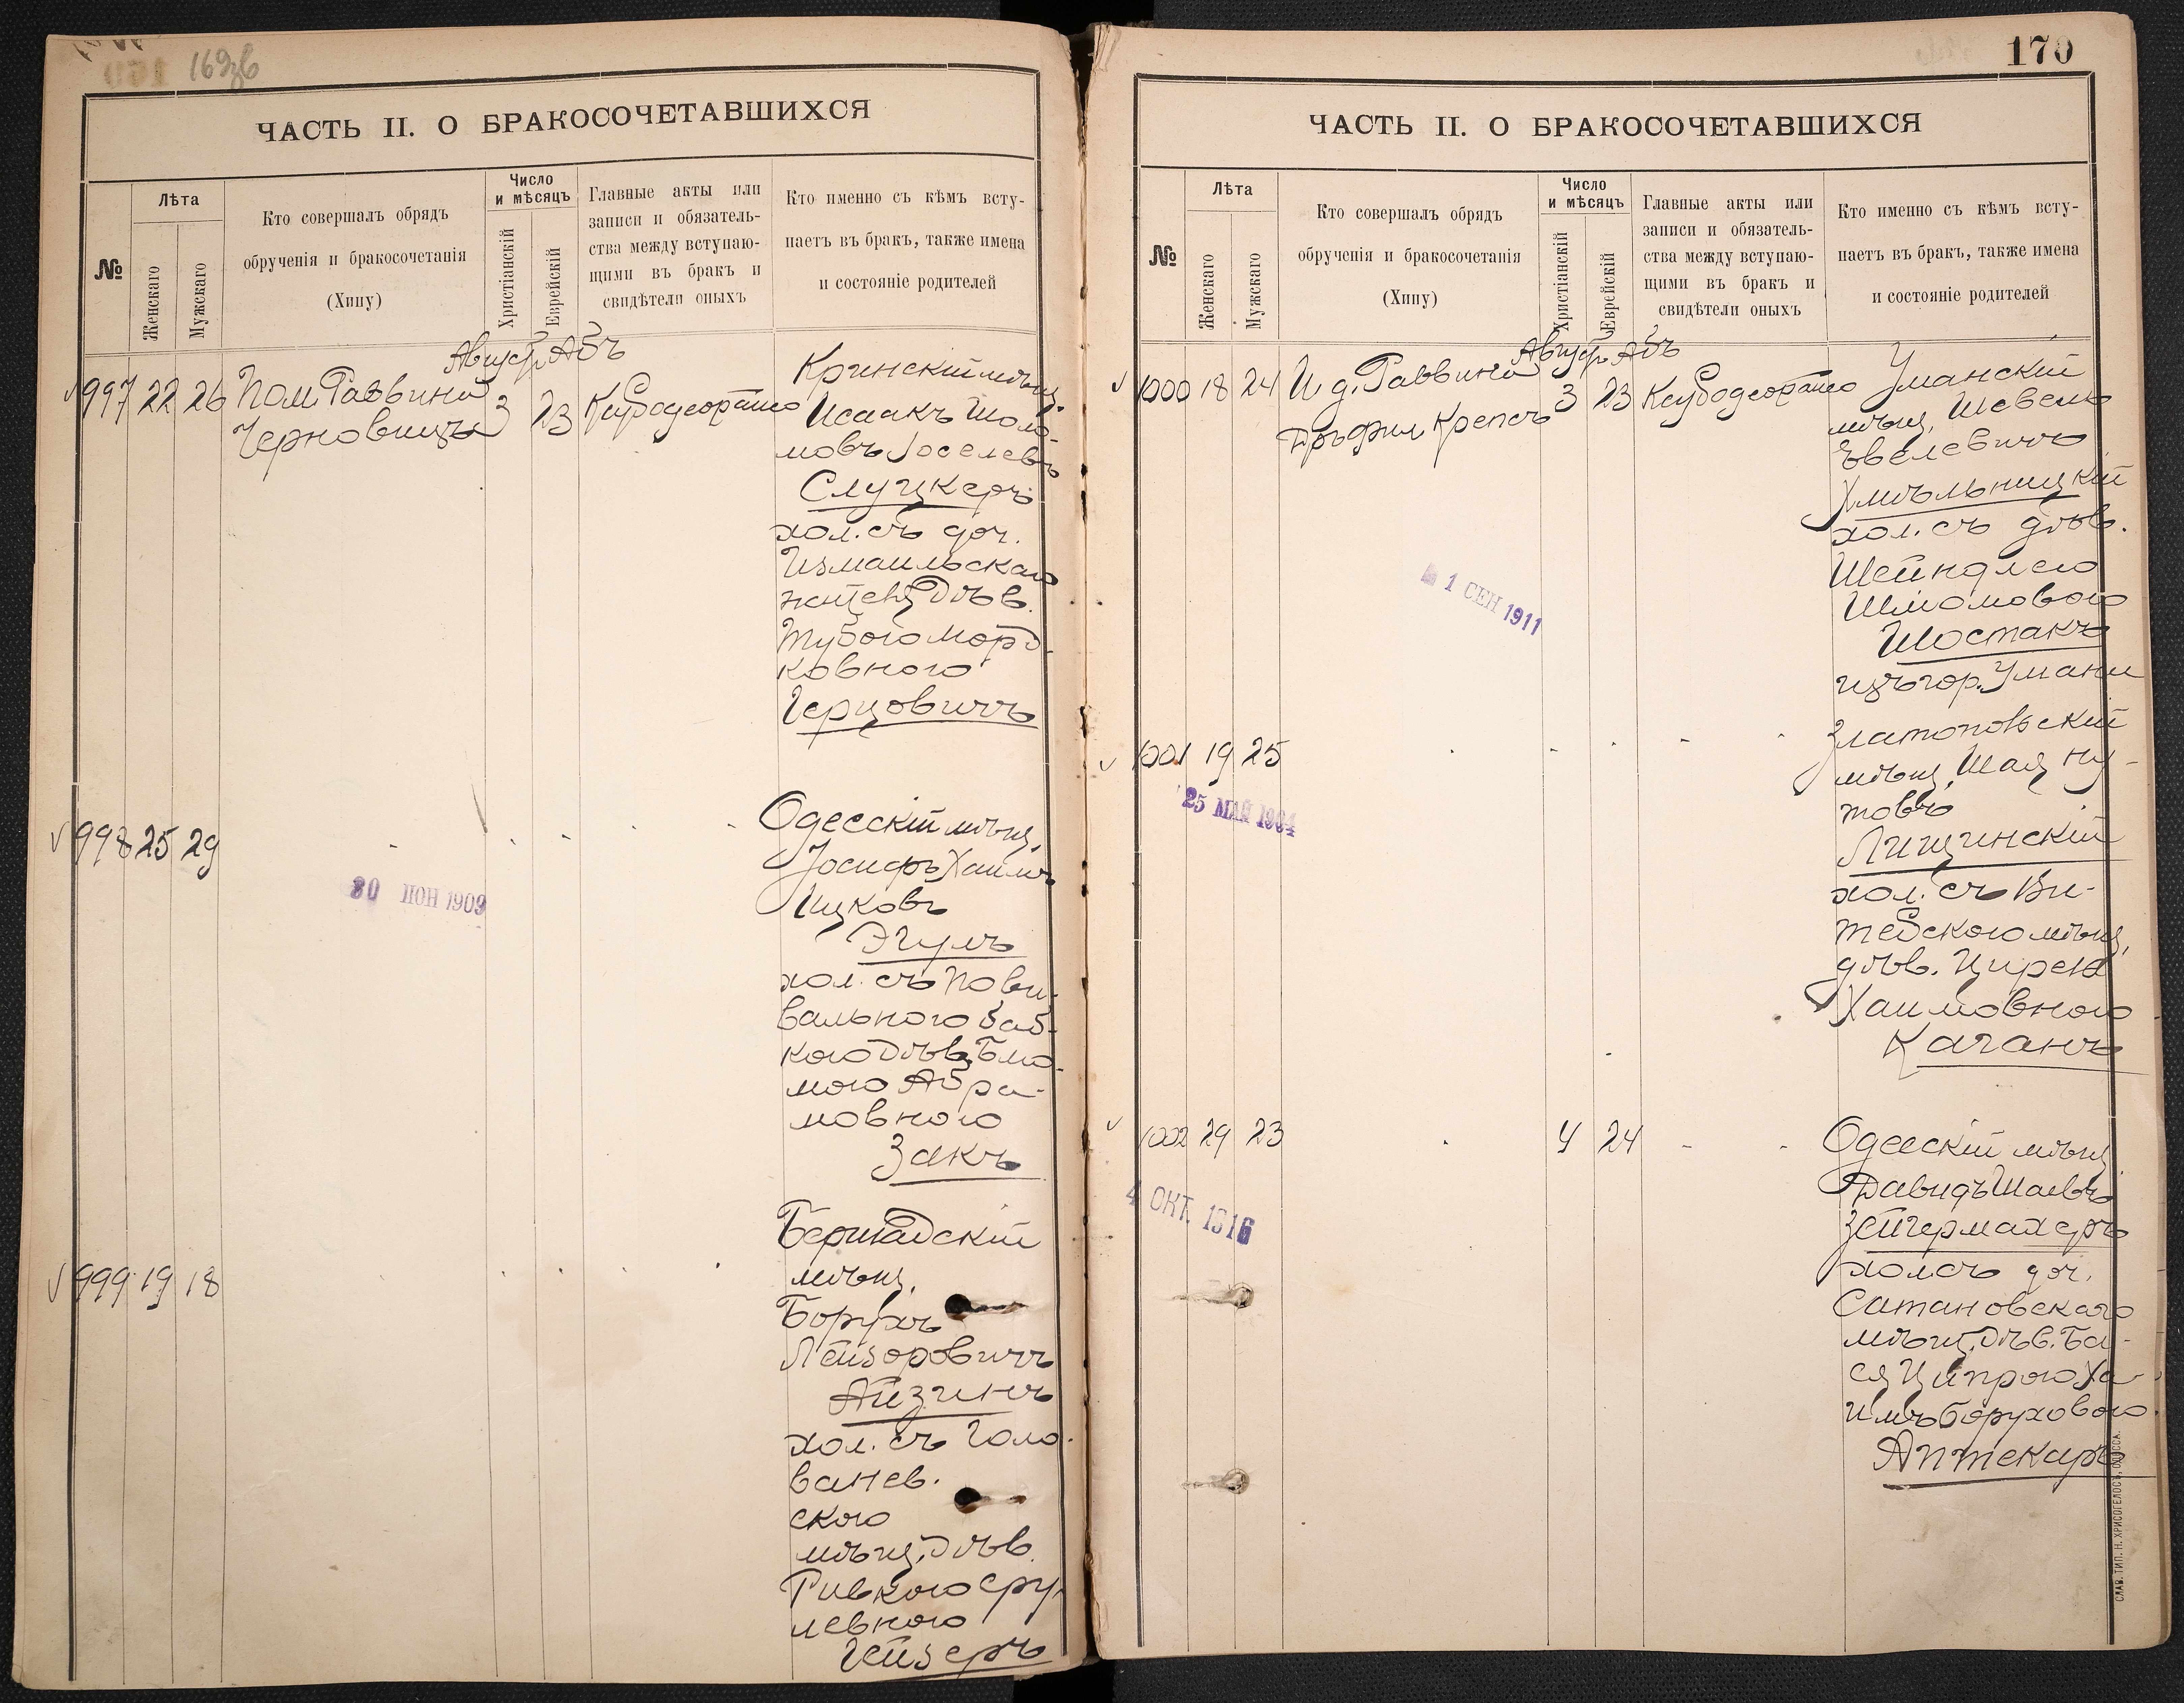 169об
ЧАСТЬ II. О БРАКОСОЧЕТАВШИХСЯ
№
Лѣта
Женскаго
Мужскаго
Кто совершалъ обрядъ
обрученія и бракосочетанія
(Хипу)
Число
и мѣсяцъ
Христіанскій
Еврейскій
Главные акты или
записи и обязатель-
ства между вступаю-
щими въ бракъ и
свидѣтели оныхъ
Кто именно съ кѣмъ всту-
паетъ въ бракъ, также имена
и состояніе родителей
Август. Абъ
997 22 26 Пом. Раввина 3 23
Черновицъ
Кринскій мѣщ.
Исаакъ Шоло-
мовъ Іоселевъ
Слуцкеръ
хол. съ доч.
Измаильскаго
жителя Дѣв.
Тубою Морд-
ковною
Герцовичъ
998 25 29
30 ІЮН 1909
Одесскій мѣщ.
Іосифъ Хаимъ
Ицковъ
Эгулъ
хол. съ Пови-
вальною Баб-
кою Дѣв. Блю-
мою Абра-
мовною
Закъ
999 19 18
Бершадскій
мѣщ.
Борухъ
Лейзоровичъ
Айзинъ
хол. съ Голо-
ванев-
скою
мѣщ. Дѣв.
Ривкою Сру-
левною
Гейзеръ
170
ЧАСТЬ II. О БРАКОСОЧЕТАВШИХСЯ
№
Лѣта
Женскаго
Мужскаго
Кто совершалъ обрядъ
обрученія и бракосочетанія
(Хипу)
Число
и мѣсяцъ
Христіанскій
Еврейскій
Главные акты или
записи и обязатель-
ства между вступаю-
щими въ бракъ и
свидѣтели оныхъ
Кто именно съ кѣмъ всту-
паетъ въ бракъ, также имена
и состояніе родителей
Август. Абъ
1000 18 24 И. д. Раввина 3 23
Крепсъ
1 СЕН 1911
Уманскій
мѣщ. Шевель
Эвелевичъ
Хмѣльницкій
хол. съ дѣв.
Шейндлею
Шломовою
Шостакъ
изъ гор. Умани
1001 19 25
25 МАЙ 1904
Златопольскій
мѣщ. Шая Ну-
товъ
Лищинскій
хол. съ Ви-
тебскою мѣщ.
дѣв. Цирею
Хаимовною
Каганъ
1002 29 23 4 24
4 ОКТ. 1916
Одесскій мѣщ.
Давидъ Шаевъ
Зейгермахеръ
хол. съ доч.
Сатановскаго
мѣщ. Дѣв. Ба-
ся Ципрою Ха-
имъ Боруховою
Аптекарь
СЛАВ. ТИП. Н. ХРИСОГЕЛОСЪ, ОДЕССА.